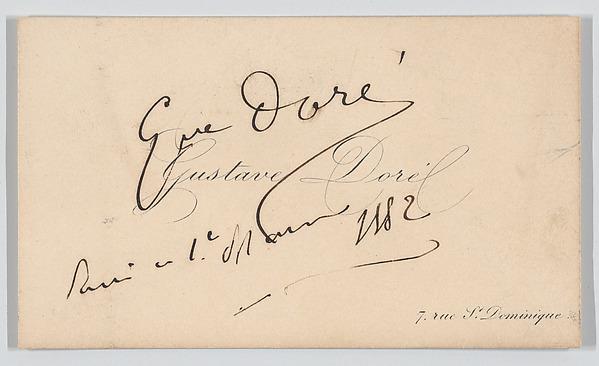 Gve Doré
Gustave Doré
Paris ce 1.er Mars 1882
7, rue St. Dominique.